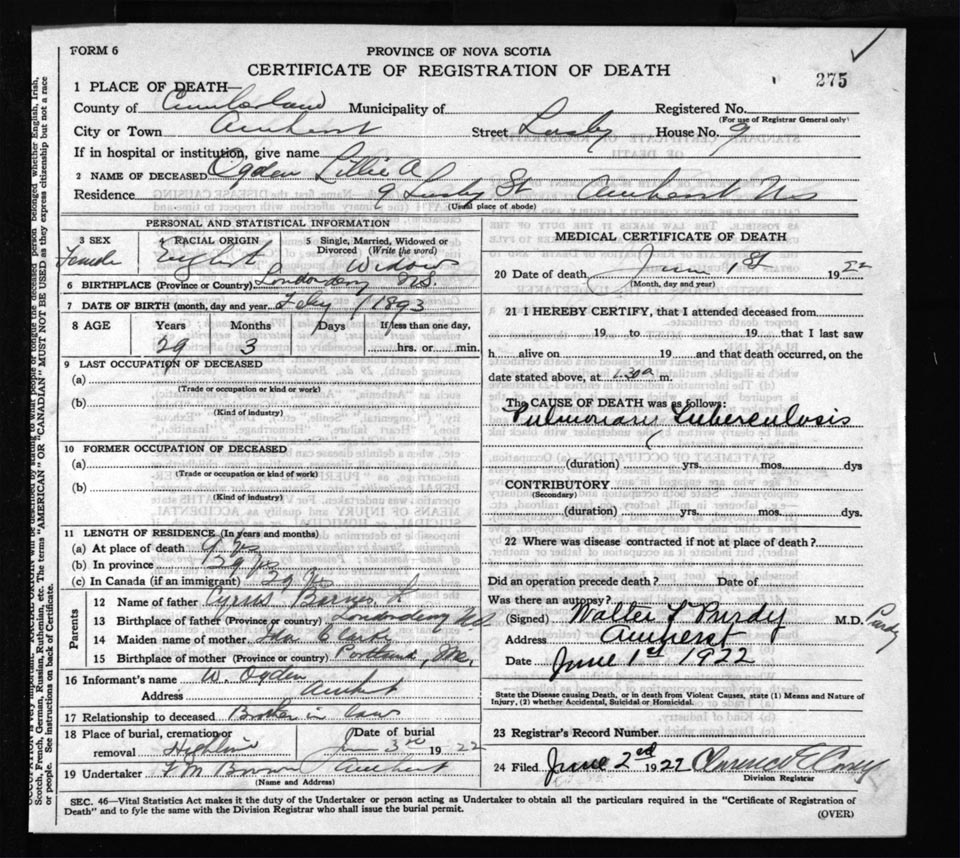 FORM 6
PROVINCE OF NOVA SCOTIA
CERTIFICATE OF REGISTRATION OF DEATH
275
1 PLACE OF DEATH—
County of Cumberland Municipality of Registered No.
(For use of Registrar General only)
City or Town Amherst Street Lusby House No. 9
If in hospital or institution, give name
2 NAME OF DECEASED Ogden Lillie A
Residence 9 Lusby St Amherst NS
(Usual place of abode)
PERSONAL AND STATISTICAL INFORMATION
3 SEX 4 RACIAL ORIGIN 5 Single, Married, Widowed or Divorced (Write the word)
Female English Widow
6 BIRTHPLACE (Province or Country) Londonderry N.S.
7 DATE OF BIRTH (month, day and year) Feby 1893
8 AGE Years Months Days If less than one day,
29 3 hrs. or min.
9 LAST OCCUPATION OF DECEASED
(a)
(Trade or occupation or kind or work)
(b)
(Kind of industry)
10 FORMER OCCUPATION OF DECEASED
(a)
(Trade or occupation or kind of work)
(b)
(Kind of Industry)
11 LENGTH OF RESIDENCE (In years and months)
(a) At place of death 9 Yrs
(b) In province 29 Yrs
(c) In Canada (if an immigrant) 29 Yrs
Parents
12 Name of father Cyrus Barnes
13 Birthplace of father (Province or country) Londonderry N.S.
14 Maiden name of mother Clarke
15 Birthplace of mother (Province or country) Portland, Me.
16 Informant's name W. Ogden
Address Amherst
17 Relationship to deceased Brother in law
18 Place of burial, cremation or removal Highland Date of burial June 3rd 1922
19 Undertaker F M Brown Amherst
(Name and Address)
MEDICAL CERTIFICATE OF DEATH
20 Date of death June 1st 1922
(Month, day and year)
21 I HEREBY CERTIFY, that I attended deceased from
19 to 19 that I last saw
h alive on 19 and that death occurred, on the
date stated above, at 1.30 a m.
The CAUSE OF DEATH was as follows:
Pulmonary Tuberculosis
(duration) yrs. mos. dys
CONTRIBUTORY
(Secondary)
(duration) yrs. mos. dys.
22 Where was disease contracted if not at place of death?
Did an operation precede death? Date of
Was there an autopsy?
(Signed) Walter T Purdy M.D. Purdy
Address Amherst
Date June 1st 1922
State the Disease causing Death, or in death from Violent Causes, state (1) Means and Nature of
Injury, (2) whether Accidental, Suicidal or Homicidal.
23 Registrar's Record Number
24 Filed June 2nd 1922 Clarence E Casey
Division Registrar
SEC. 46—Vital Statistics Act makes it the duty of the Undertaker or person acting as Undertaker to obtain all the particulars required in the "Certificate of Registration of
Death" and to fyle the same with the Division Registrar who shall issue the burial permit.
(OVER)
Scotch, French, German, Russian, Ruthenian, etc. The terms "AMERICAN" OR "CANADIAN" MUST NOT BE USED as they express citizenship but not a race
or people. See instructions on back of Certificate.